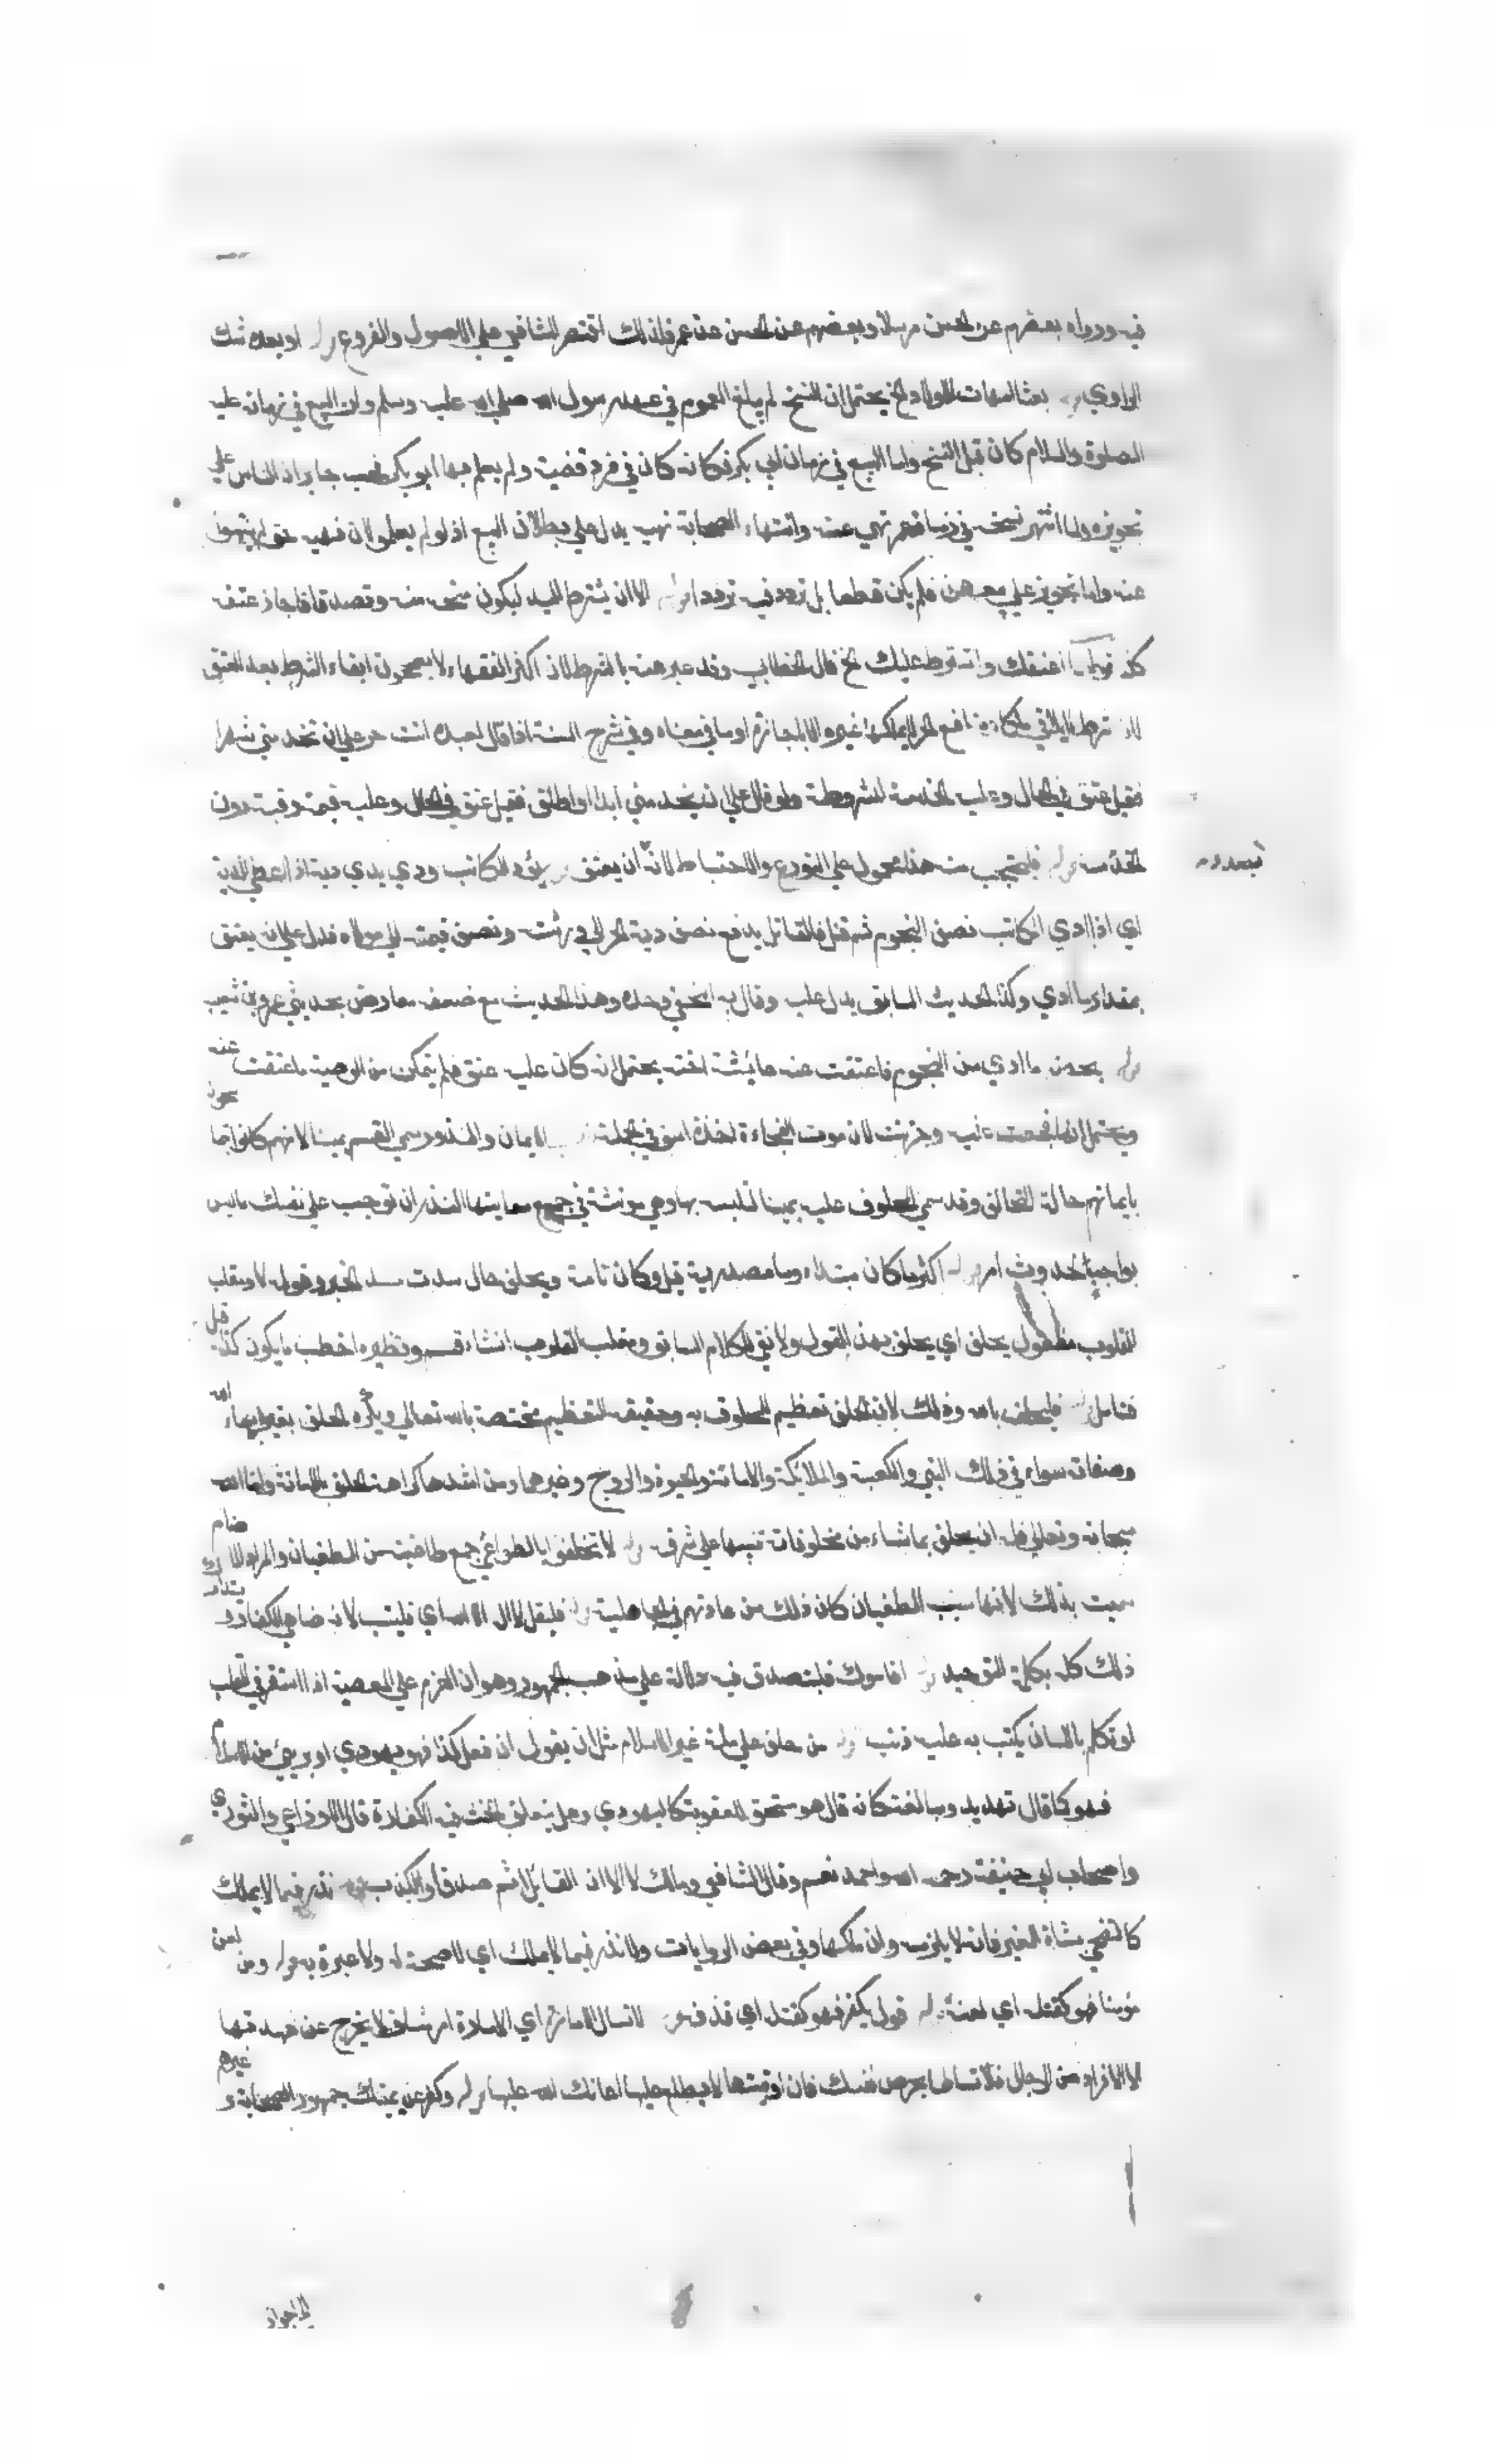 فيه ورواه بعضهم عن الحسن مرسلا وبعضهم عن الحسن عن عمر فلذلك اقتصر الشافعي علي الاصول والفروع او بعده شك
الراوي بعنا امهات الاولاد الخ يحتمل ان النسخ لم يبلغ العموم في عهد رسول الله صلي الله عليه وسلم وان البيع في زمانه عليه
الصلوة والسلام كان قبل النسخ واما البيع في زمان ابي بكر فكانه كان في فرد قضية ولم يعلم بها ابو بكر فحسب جابر ان الناس علي
تجويزه ولما اشتهر نسخه في زمن عمر نهي عنه وانتهاء الصحابة نهيه يدل علي بطلان البيع اذ لو لم يعلموا ان نهيه حق لم ينتهوا
عنه واما تجويز علي بيعهن فلم يكن قطعا بل تردد فيه ترددا الا ان يشترط السيد ليكون منحة منه وتصدقا فلجاز عتقه
اعتقك واشترط عليك الخ قال الخطابي وقد عبر عنه بالشرط لان اكثر الفقهاء لا يصححون ايقاء الشرط بعد العتق
لانه شرط لا يلاقي ملكا ومنافع الحر لا يملكها غيره الا باجازة او ما في معناه وفي شرح السنة اذا قال لعبده انت حر علي ان تخدمني شهرا
فقبل عتق في الحال وعليه الخدمة المشروطة ولو قال علي ان تخدمني ابدا او اطلق فقبل عتق في الحال وعليه قيمة رقبته دون
الخدمة فليحتجب منه هذا محمول علي التورع والاحتياط لانه ان يعتق يؤد المكاتب ودي يدي دية اذا اعطي الدية
اي اذا ادي المكاتب نصف النجوم ثم قتل فالقاتل يدفع نصف دية الحر الي ورثته ونصف قيمته الي مولاه فدل علي انه يعتق
بمقدار ما ادي وكذا الحديث السابق يدل عليه وقال به النخعي وحده وهذا الحديث مع ضعفه معارض بحديثي عمرو بن شعيب
بعض ما ادي من النجوم فاعتقت عنه عائشة اخته يحتمل انه كان عليه عتق فلم يتمكن من الوصية فاعتقت عنه
ويحتمل انها فجعت عليه وحزنت لان موت الفجاءة اخذة اسف في الجملة الايمان والنذور سمي القسم يمينا لانهم كانوا
بايمانهم حالة التحالف وقد سمي المحلوف عليه يمينا لتلبسه بها وهي مونثة في جميع معانيها النذر ان توجب علي نفسك ما ليس
بواجب لحدوث امر اكثر ما كان مبتداء وما مصدرية قيل وكان تامة ويحلف حال سدت مسد الخبر وقوله لا ومقلب
القلوب مفعول يحلف اي يحلف بهذا القول ولا نفي للكلام السابق ومقلب القلوب انشاء قسم ونظيره اخطب ما يكون
فليحلف بالله وذلك لان الحلف تعظيم المحلوف به وحقيقة التعظيم مختصة بالله تعالي ويكره الحلف بغير اسماء الله
وصفاته سواء في ذلك النبي والكعبة والملائكة والامانة والحيوة والروح وغيرهما ومن اشدها كراهة الحلف بالامانة واما الله
سبحانه وتعالي فله ان يحلف بما شاء من مخلوقاته تنبيها علي شرفه لا تحلفوا بالطواغي جمع طاغية من الطغيان والمراد الاصنام
سميت بذلك لانها سبب الطغيان كان ذلك من عادتهم في الجاهلية فليقل لا اله الا الله اي فليتب لانه ضاهي الكفار
ذلك كله بكلمة التوحيد اقامرك فليتصدق فيه دلالة علي مذهب الجمهور وهو ان العزم علي المعصية اذا استقر في القلب
او تكلم باللسان يكتب به عليه ذنب من حلف علي ملة غير الاسلام مثل ان يقول ان فعل كذا فهو يهودي او بريئ من الاسلام
فهو كما قال تهديد ومبالغة كانه قال هو مستحق للعقوبة كاليهودي وهل يتعلق بالحنث فيه الكفارة قال الاوزاعي والثوري
واصحاب ابي حنيفة رحمه الله واحمد نعم وقال الشافعي ومالك لا الا ان القائل اثم صدق او كذب نذر فيما لا يملك
كالتضحي بشاة الغير فانه لا يلزمه وان ملكها وفي بعض الروايات ولا نذر فيما لا يملك اي لا صحة له ولا عبرة به ومن لعن
مؤمنا فهو كقتله اي لعنه قوله بكفر فهو كقتله اي قذفه لا تسال الامارة اي الامارة امر شاق لا يخرج عن عهدتها
الا الافراد من الرجال فلا تسالها بحرص نفسك فان اوتيتها لا بطلب عليها اعانك الله عليها وكفر عن يمينك جمهور الصحابة وغيرهم